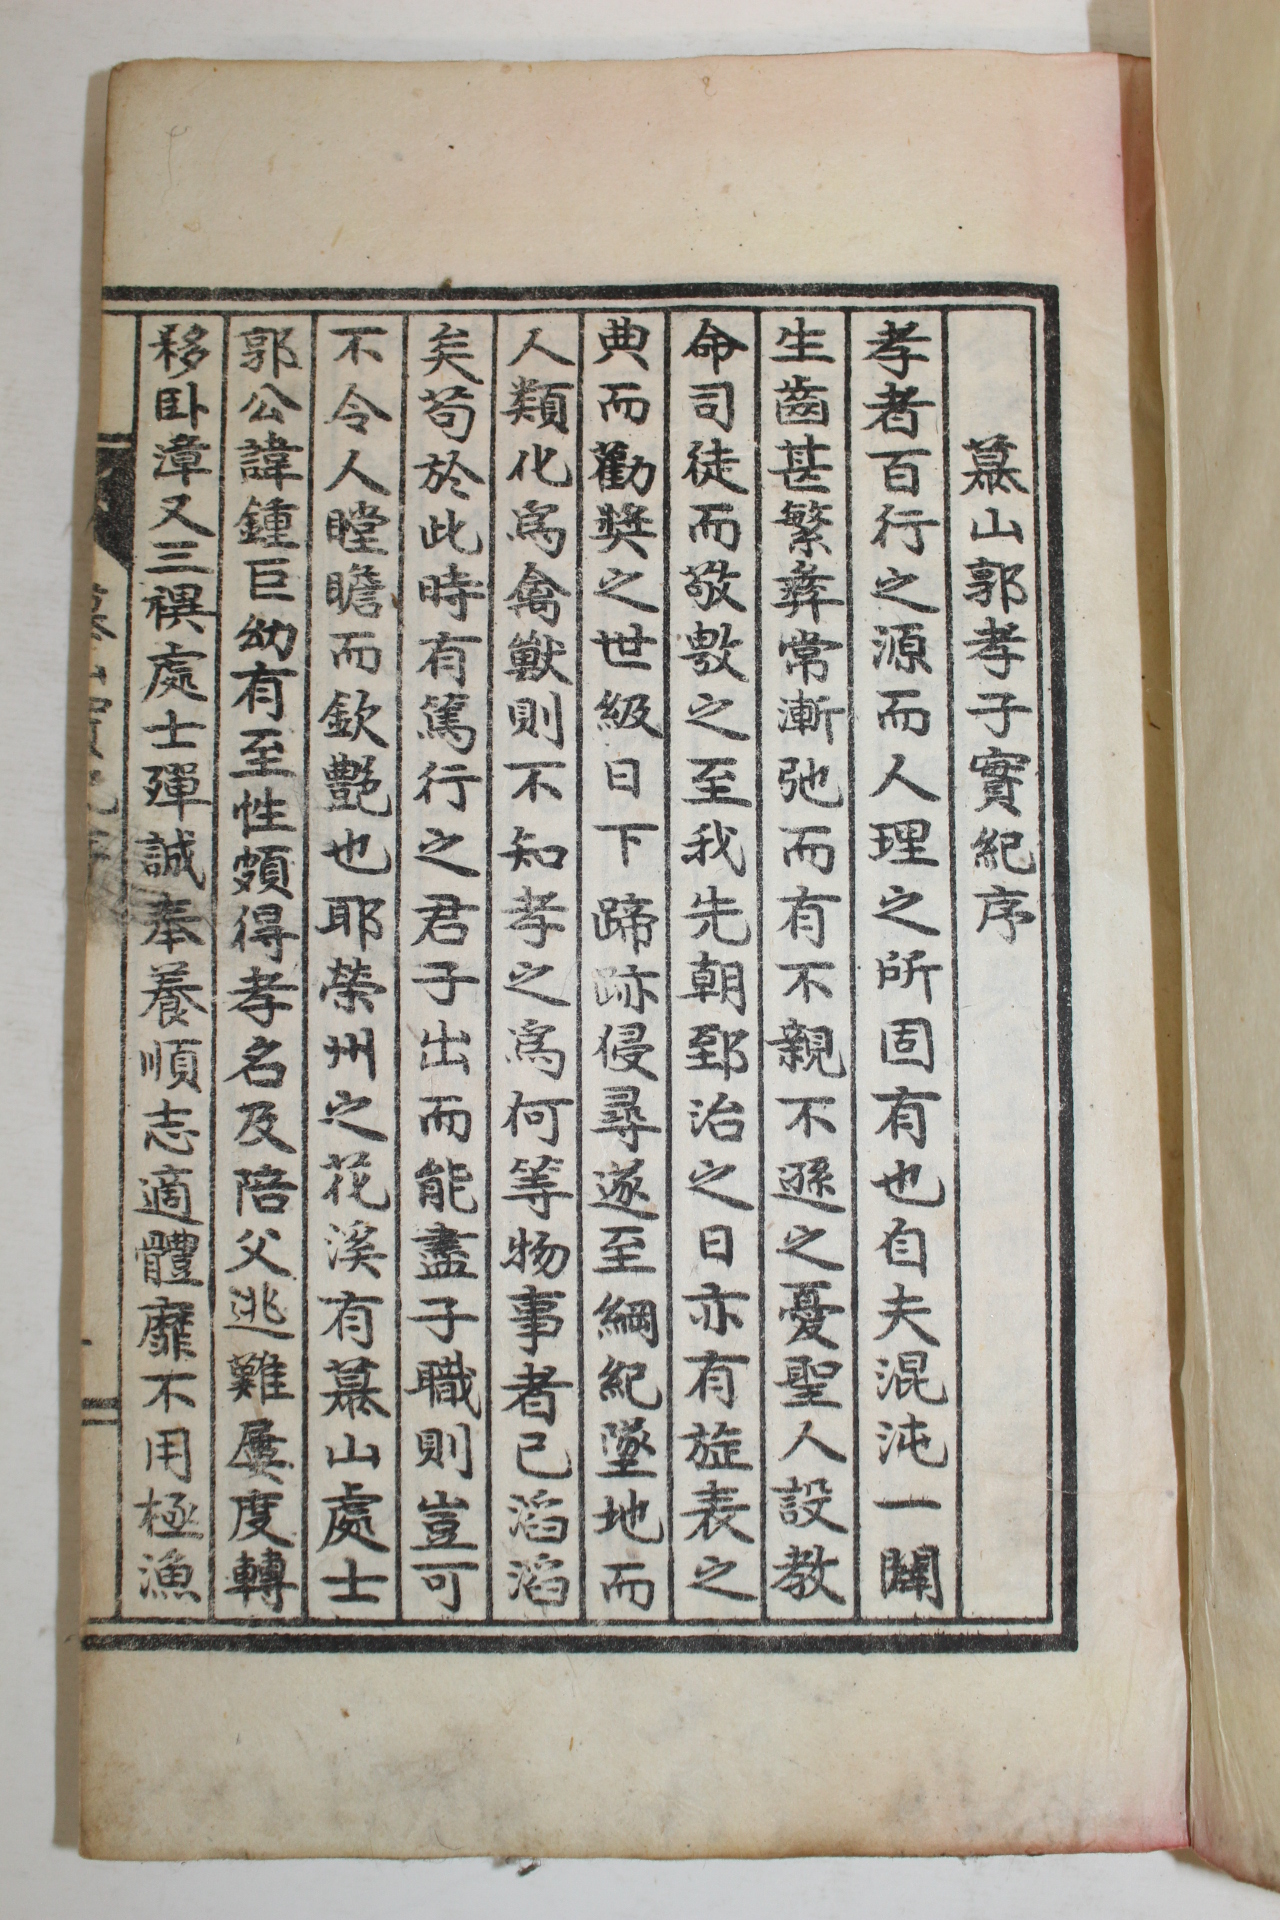 慕山郭孝子實紀序
孝者百行之源而人理之所固有也自夫混沌一闢
生齒甚繁彝常漸弛而有不親不遜之憂聖人設教
命司徒而敬敷之至我先朝郅治之日亦有旌表之
典而勸奬之世級日下蹄跡侵尋遂至綱紀墜地而
人類化爲禽獸則不知孝之爲何等物事者已滔滔
矣苟於此時有篤行之君子出而能盡子職則豈可
不令人瞠瞻而欽艶也耶榮州之花溪有慕山處士
郭公諱鍾巨幼有至性頗得孝名及陪父逃難屢度轉
移卧漳又三禩處士殫誠奉養順志適體靡不用極漁